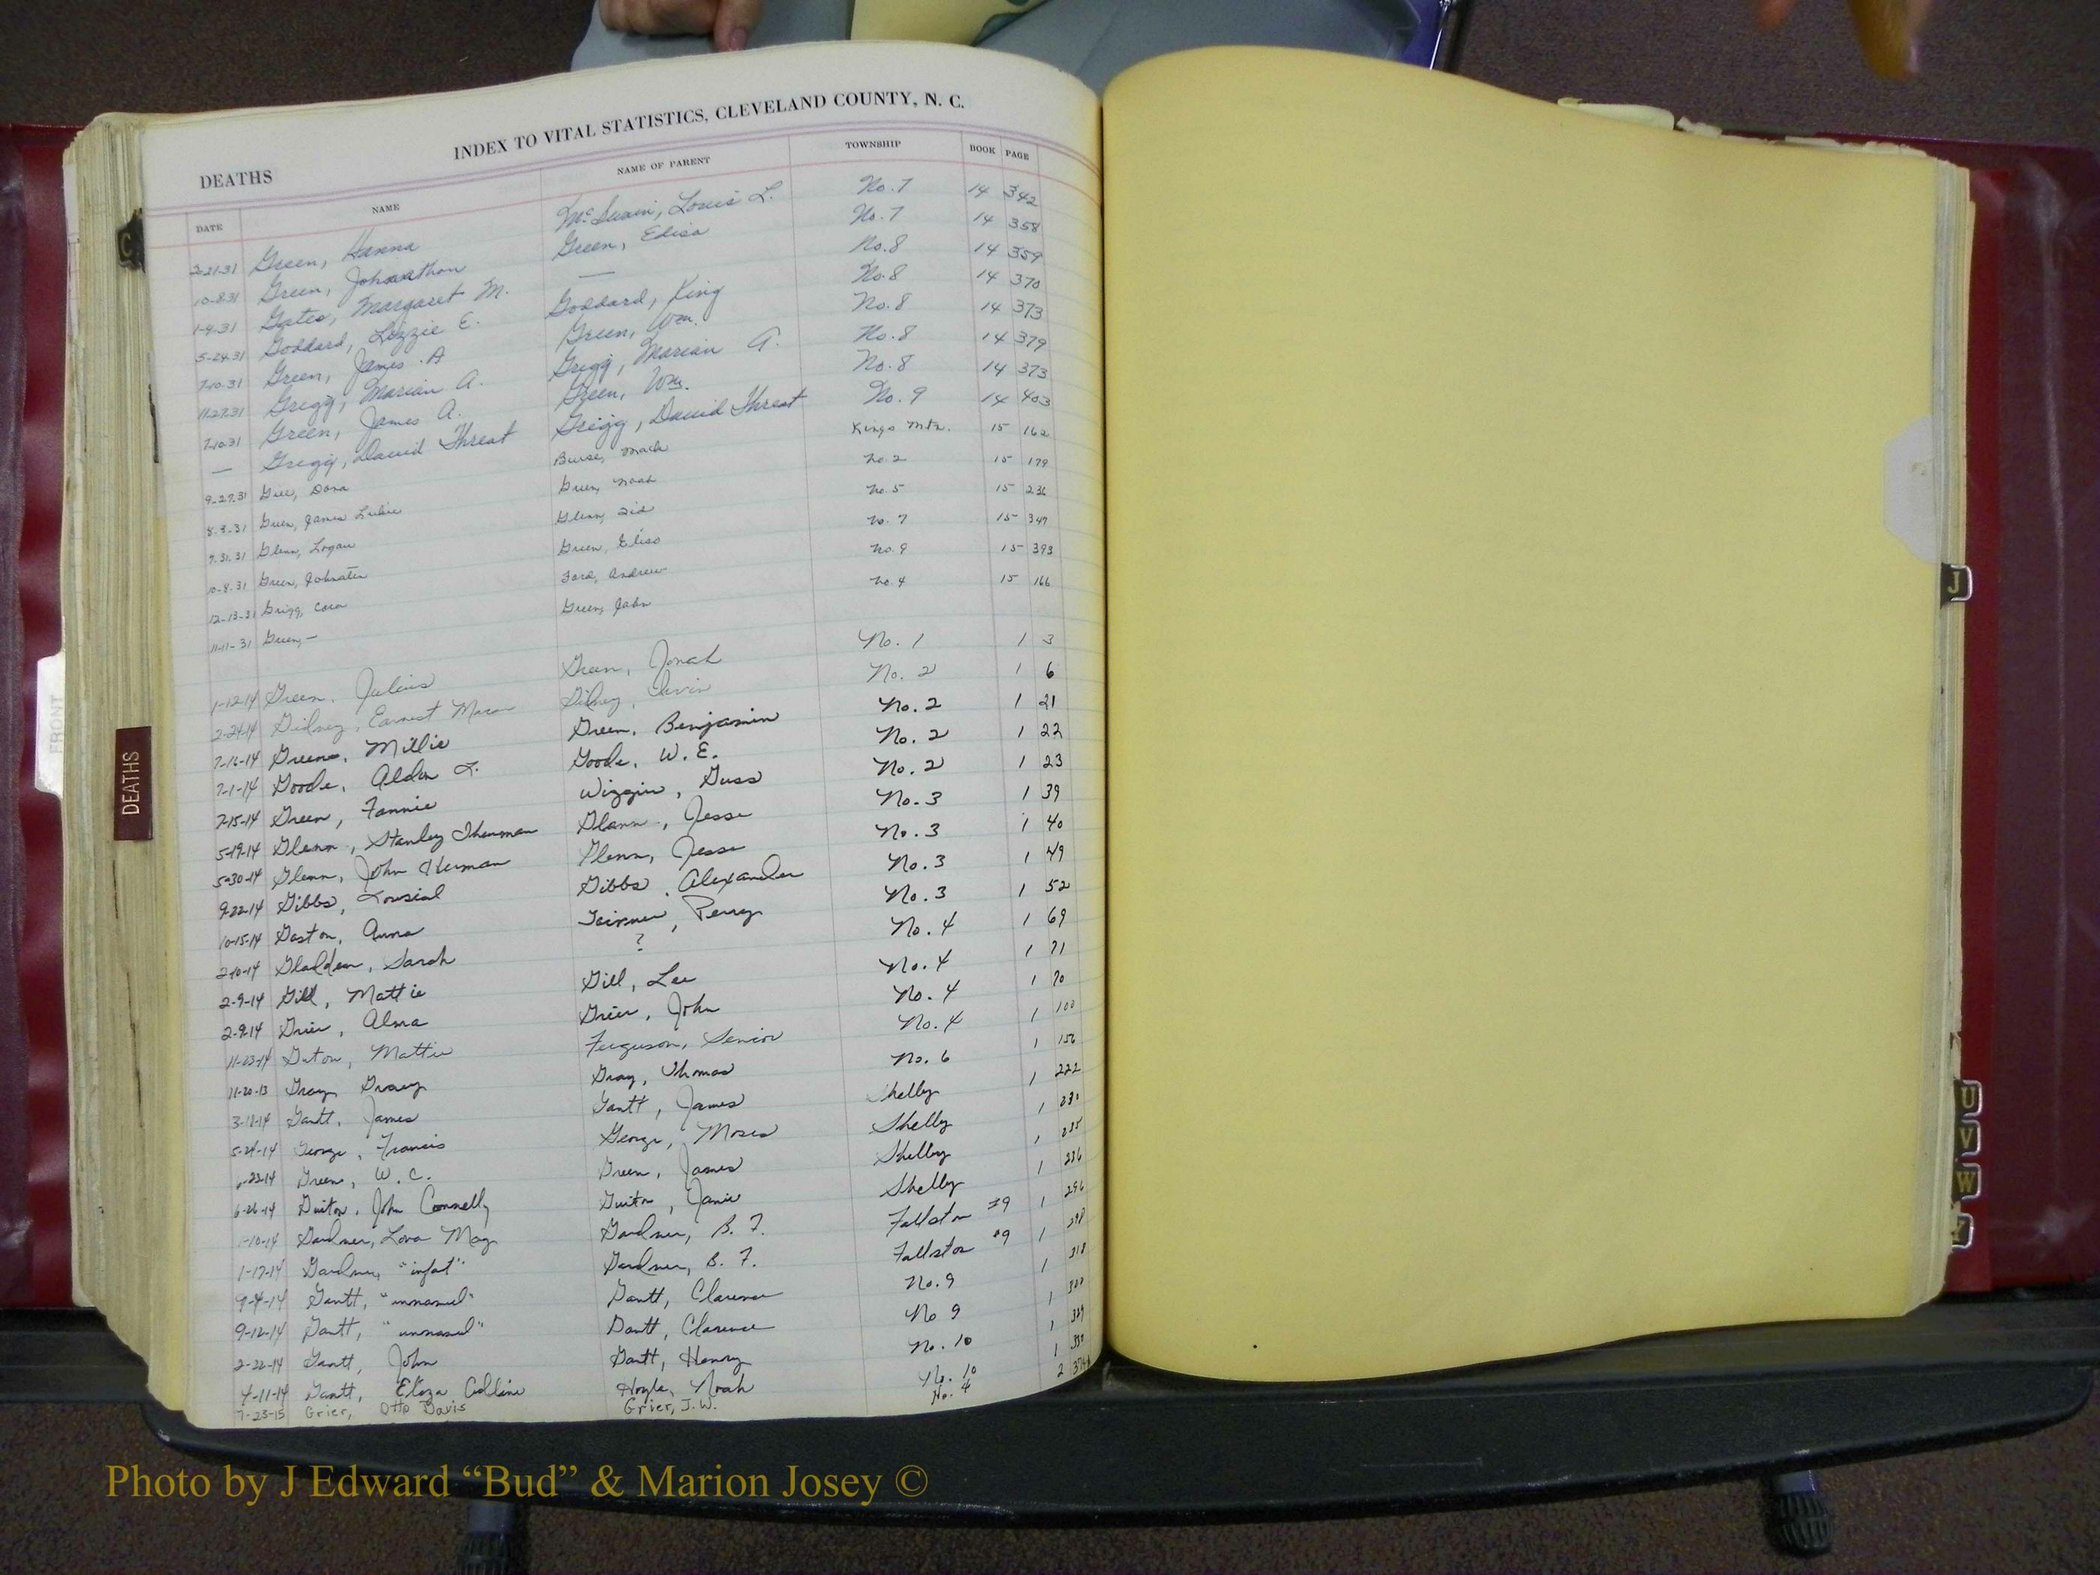 INDEX TO VITAL STATISTICS, CLEVELAND COUNTY, N. C.
DEATHS
DATE NAME NAME OF PARENT TOWNSHIP BOOK PAGE
2-21-31 Green, Hanna McSwain, Louis L. No. 7 14 342
10-8-31 Green, Johnathon Green, Edisa No. 7 14 358
1-9-31 Gates, Margaret M. — No. 8 14 359
5-24-31 Goddard, Lizzie E. Goddard, King No. 8 14 370
7-10-31 Green, James A Green, Wm. No. 8 14 373
11-27-31 Grigg, Marian A. Grigg, Marian A. No. 8 14 379
7-10-31 Green, James A. Green, Wm. No. 8 14 373
— Grigg, David Threat Grigg, David Threat No. 9 14 403
9-27-31 Dora Kings Mtn. 15 162
8-9-31 Green, James Green, Noah No. 2 15 179
7-31-31 Glenn, Logan Glenn, Sid No. 5 15 236
10-8-31 Green, Green, No. 7 15 347
12-13-31 Grigg, Cora Ford, Andrew No. 9 15 393
11-11-31 Green, — Green, John No. 4 15 166
1-12-14 Green, Julius Green, Jonah No. 1 1 3
2-24-14 Gidney, Earnest No. 2 1 6
7-16-14 Greene, Millie Green, Benjamin No. 2 1 21
7-1-14 Goode, Alda L. Goode, W. E. No. 2 1 22
7-15-14 Green, Fannie Wiggin, Guss No. 2 1 23
5-19-14 Glenn, Stanley Thurman Glenn, Jesse No. 3 1 39
5-30-14 Glenn, John Herman Glenn, Jesse No. 3 1 40
9-22-14 Gibbs, Gibbs, Alexander No. 3 1 49
10-15-14 Gaston, Anna Perry No. 3 1 52
2-10-14 Gladden, Sarah ? No. 4 1 69
2-9-14 Gill, Mattie Gill, Lee No. 4 1 71
2-9-14 Grier, Alma Grier, John No. 4 1 70
11-23-14 Mattie Ferguson, Senior No. 4 1 100
11-20-13 Gray, Gracy Gray, Thomas No. 6 1 156
3-18-14 Gantt, James Gantt, James Shelby 1 222
5-24-14 George, Francis George, Moses Shelby 1 230
-22-14 Green, W. C. Green, James Shelby 1 235
6-26-14 Guiton, John Connelly Guiton, Janie Shelby 1 236
1-10-14 Gardner, Lova May Gardner, B. F. Fallston #9 1 296
1-17-14 Gardner, "infat" Gardner, B. F. Fallston #9 1 298
9-4-14 Gantt, "unnamed" Gantt, Clarence No. 9 1 318
9-12-14 Gantt, "unnamed" Gantt, Clarence No 9 1 320
2-22-14 Gantt, John Gantt, Henry No. 10 1 329
4-11-14 Gantt, Eliza Hoyle, Noah No. 10 1 330
7-23-15 Grier, Otto Davis Grier, J. W. No. 4 2
C
FRONT
DEATHS
J
U
V
W
Photo by J Edward “Bud” & Marion Josey ©